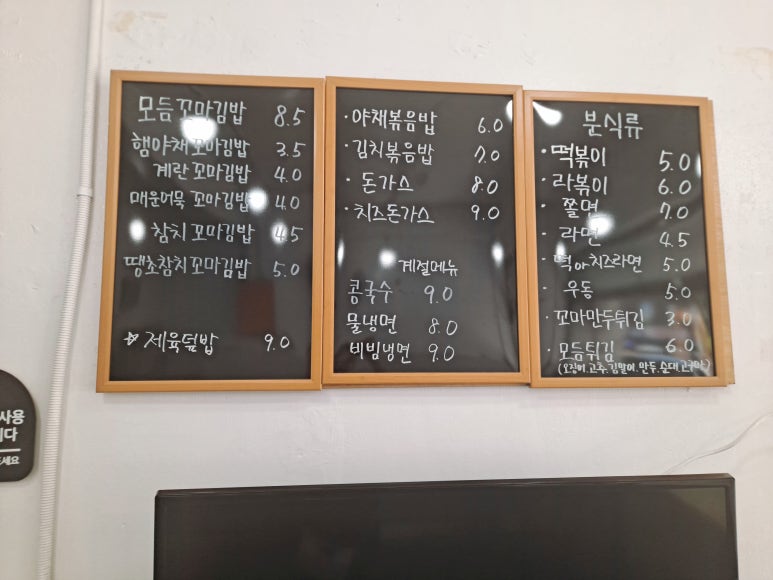 모듬꼬마김밥 8.5
햄야채꼬마김밥 3.5
계란꼬마김밥 4.0
매운어묵꼬마김밥 4.0
참치꼬마김밥 4.5
땡초참치꼬마김밥 5.0
☆제육덮밥 9.0
·야채볶음밥 6.0
·김치볶음밥 7.0
·돈가스 8.0
·치즈돈가스 9.0
계절메뉴
콩국수 9.0
물냉면 8.0
비빔냉면 9.0
분식류
·떡볶이 5.0
·라볶이 6.0
·쫄면 7.0
·라면 4.5
·떡or치즈라면 5.0
·우동 5.0
·꼬마만두튀김 3.0
·모듬튀김 6.0
(오징어,고추,김말이,만두,순대,고구마)
사용
니다
세요